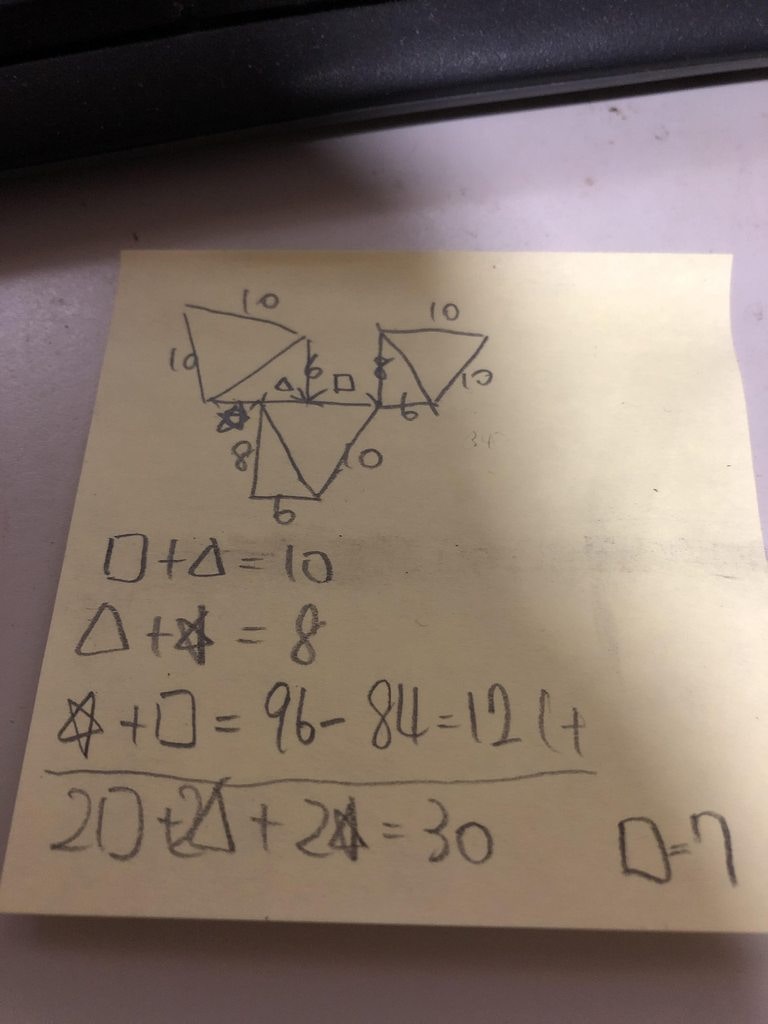 10 10
10 6 △ □ 8 10
☆ 6
8 10 34
6
□+△=10
△+☆=8
☆+□=96-84=12(+
2□+2△+2☆=30
□=7